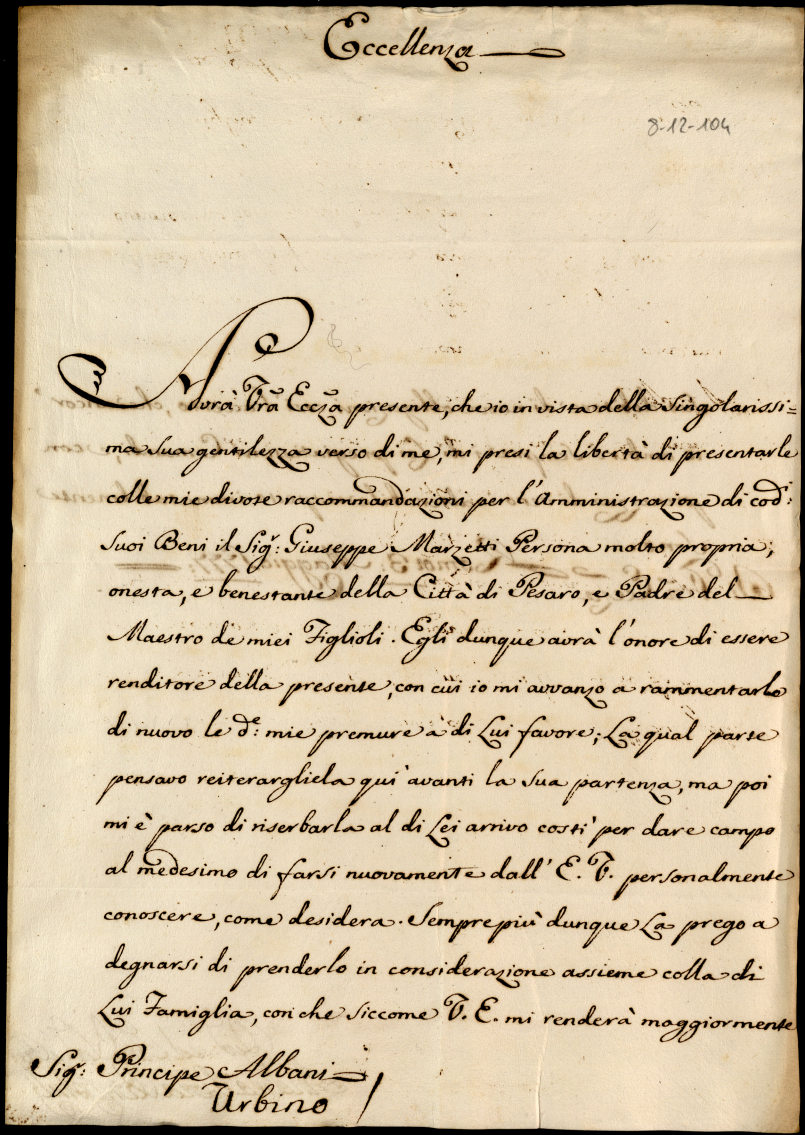 Eccellenza
8-12-104
Avrà Vrã Eccza presente, che io in vista della singolarissi=
ma sua gentilezza verso di me, mi presi la libertà di presentarle
colle mie divote raccommandazioni per l'Amministrazione di cod:i
suoi Beni il Sigr: Giuseppe Marzetti Persona molto propria,
onesta, e benestante della Città di Pesaro, e Padre del
Maestro de miei Figlioli. Egli dunque avrà l'onore di essere
renditore della presente, con cui io mi avvanzo a rammentarle
di nuovo le de: mie premure à di Lui favore; La qual parte
pensavo reiterargliela quì avanti la sua partenza, ma poi
mi è parso di riserbarla al di Lei arrivo costì per dare campo
al medesimo di farsi nuovamente dall' E. V. personalmente
conoscere, come desidera. Sempre più dunque La prego a
degnarsi di prenderlo in considerazione assieme colla di
Lui Famiglia, con che siccome V. E. mi renderà maggiormente
Sigr: Principe Albani
Urbino